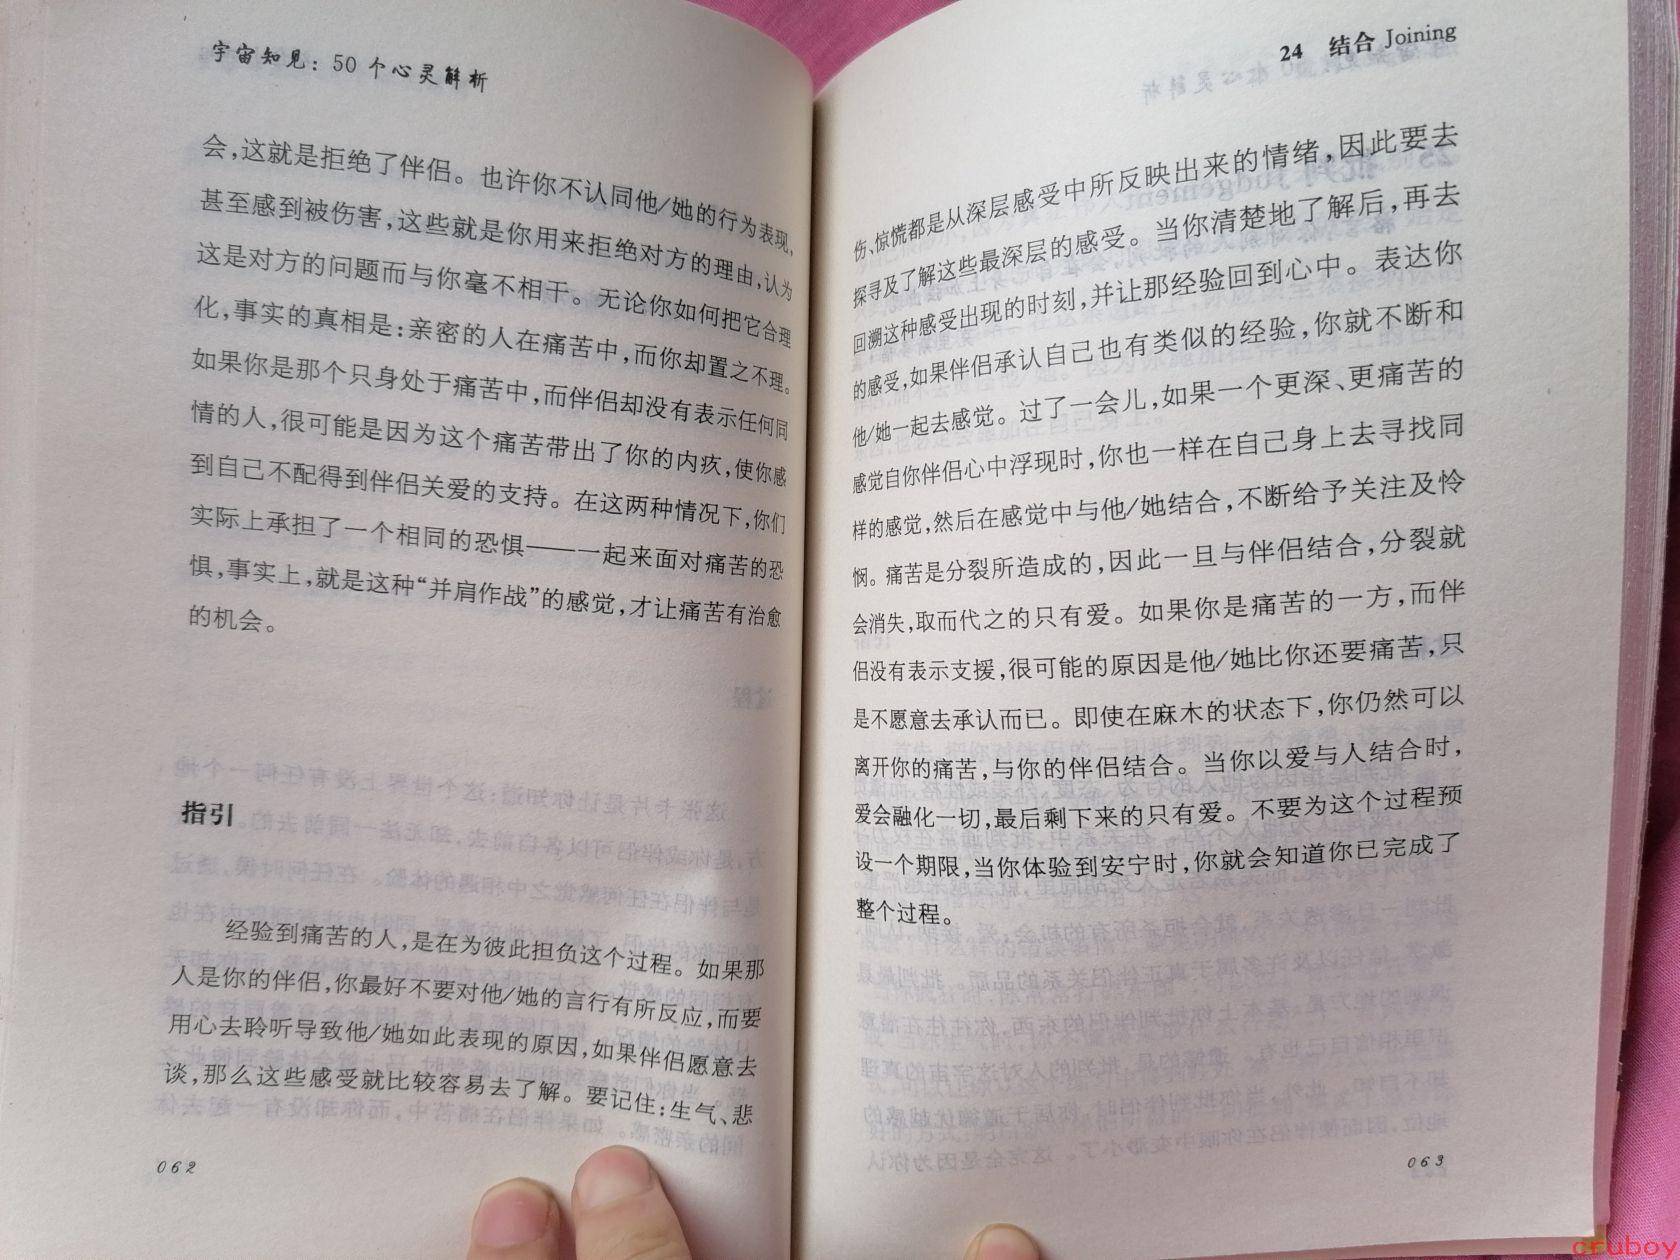 宇宙知见：50个心灵解析
会，这就是拒绝了伴侣。也许你不认同他/她的行为表现，
甚至感到被伤害，这些就是你用来拒绝对方的理由，认为
这是对方的问题而与你毫不相干。无论你如何把它合理
化，事实的真相是：亲密的人在痛苦中，而你却置之不理。
如果你是那个只身处于痛苦中，而伴侣却没有表示任何同
情的人，很可能是因为这个痛苦带出了你的内疚，使你感
到自己不配得到伴侣关爱的支持。在这两种情况下，你们
实际上承担了一个相同的恐惧——一起来面对痛苦的恐
惧，事实上，就是这种“并肩作战”的感觉，才让痛苦有治愈
的机会。
指引
经验到痛苦的人，是在为彼此担负这个过程。如果那
人是你的伴侣，你最好不要对他/她的言行有所反应，而要
用心去聆听导致他/她如此表现的原因，如果伴侣愿意去
谈，那么这些感受就比较容易去了解。要记住：生气、悲
062
24 结合 Joining
伤、惊慌都是从深层感受中所反映出来的情绪，因此要去
探寻及了解这些最深层的感受。当你清楚地了解后，再去
回溯这种感受出现的时刻，并让那经验回到心中。表达你
的感受，如果伴侣承认自己也有类似的经验，你就不断和
他/她一起去感觉。过了一会儿，如果一个更深、更痛苦的
感觉自你伴侣心中浮现时，你也一样在自己身上去寻找同
样的感觉，然后在感觉中与他/她结合，不断给予关注及怜
悯。痛苦是分裂所造成的，因此一旦与伴侣结合，分裂就
会消失，取而代之的只有爱。如果你是痛苦的一方，而伴
侣没有表示支援，很可能的原因是他/她比你还要痛苦，只
是不愿意去承认而已。即使在麻木的状态下，你仍然可以
离开你的痛苦，与你的伴侣结合。当你以爱与人结合时，
爱会融化一切，最后剩下来的只有爱。不要为这个过程预
设一个期限，当你体验到安宁时，你就会知道你已完成了
整个过程。
063
cruboy